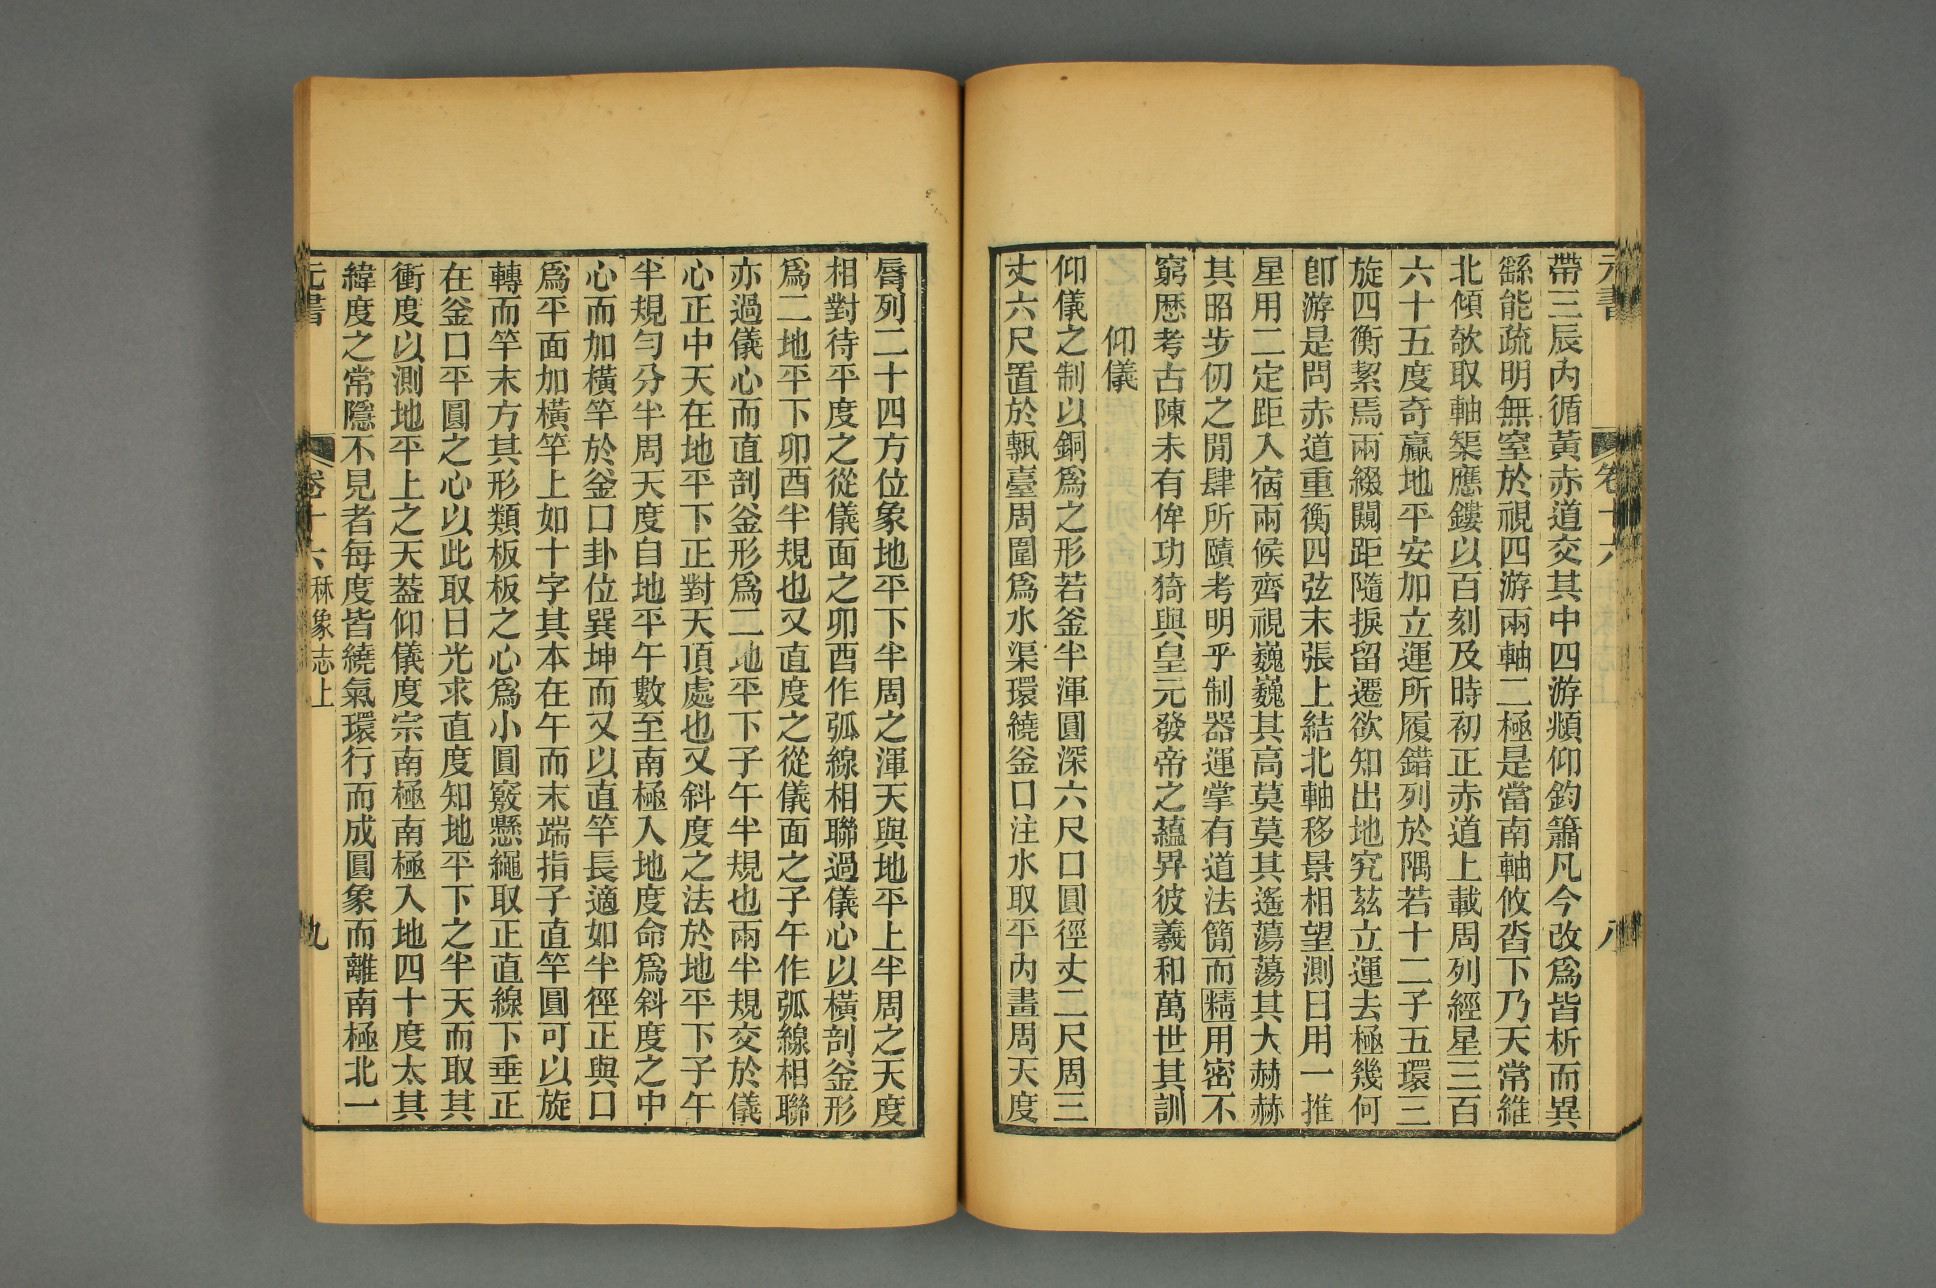 元書 卷十六 八
帶三辰內循黃赤道交其中四游頫仰鈞簫凡今改爲皆析而異
繇能疏明無窒於視四游兩軸二極是當南軸攸沓下乃天常維
北傾欹取軸榘應鏤以百刻及時初正赤道上載周列經星三百
六十五度奇贏地平安加立運所履錯列於隅若十二子五環三
旋四衡絜焉兩綴闚距隨捩留遷欲知出地究茲立運去極幾何
卽游是問赤道重衡四弦末張上結北軸移景相望測日用一推
星用二定距入宿兩候齊視巍巍其高莫莫其遙蕩蕩其大赫赫
其昭步仞之閒肆所賾考明乎制器運掌有道法簡而精用密不
窮歷考古陳未有侔功猗與皇元發帝之蘊畀彼羲和萬世其訓
仰儀
仰儀之制以銅爲之形若釜半渾圓深六尺口圓徑丈二尺周三
丈六尺置於甎臺周圍爲水渠環繞釜口注水取平內畫周天度
脣列二十四方位象地平下半周之渾天與地平上半周之天度
相對待平度之從儀面之卯酉作弧線相聯過儀心以橫剖釜形
爲二地平下卯酉半規也又直度之從儀面之子午作弧線相聯
亦過儀心而直剖釜形爲二地平下子午半規也兩半規交於儀
心正中天在地平下正對天頂處也又斜度之法於地平下子午
半規勻分半周天度自地平午數至南極入地度命爲斜度之中
心而加橫竿於釜口卦位巽坤而又以直竿長適如半徑正與口
爲平面加橫竿上如十字其本在午而末端指子直竿圓可以旋
轉而竿末方其形類板板之心爲小圓竅懸繩取正直線下垂正
在釜口平圓之心以此取日光求直度知地平下之半天而取其
衝度以測地平上之天蓋仰儀度宗南極南極入地四十度太其
緯度之常隱不見者每度皆繞氣環行而成圓象而離南極北一
元書 卷十六 秝象志上 九